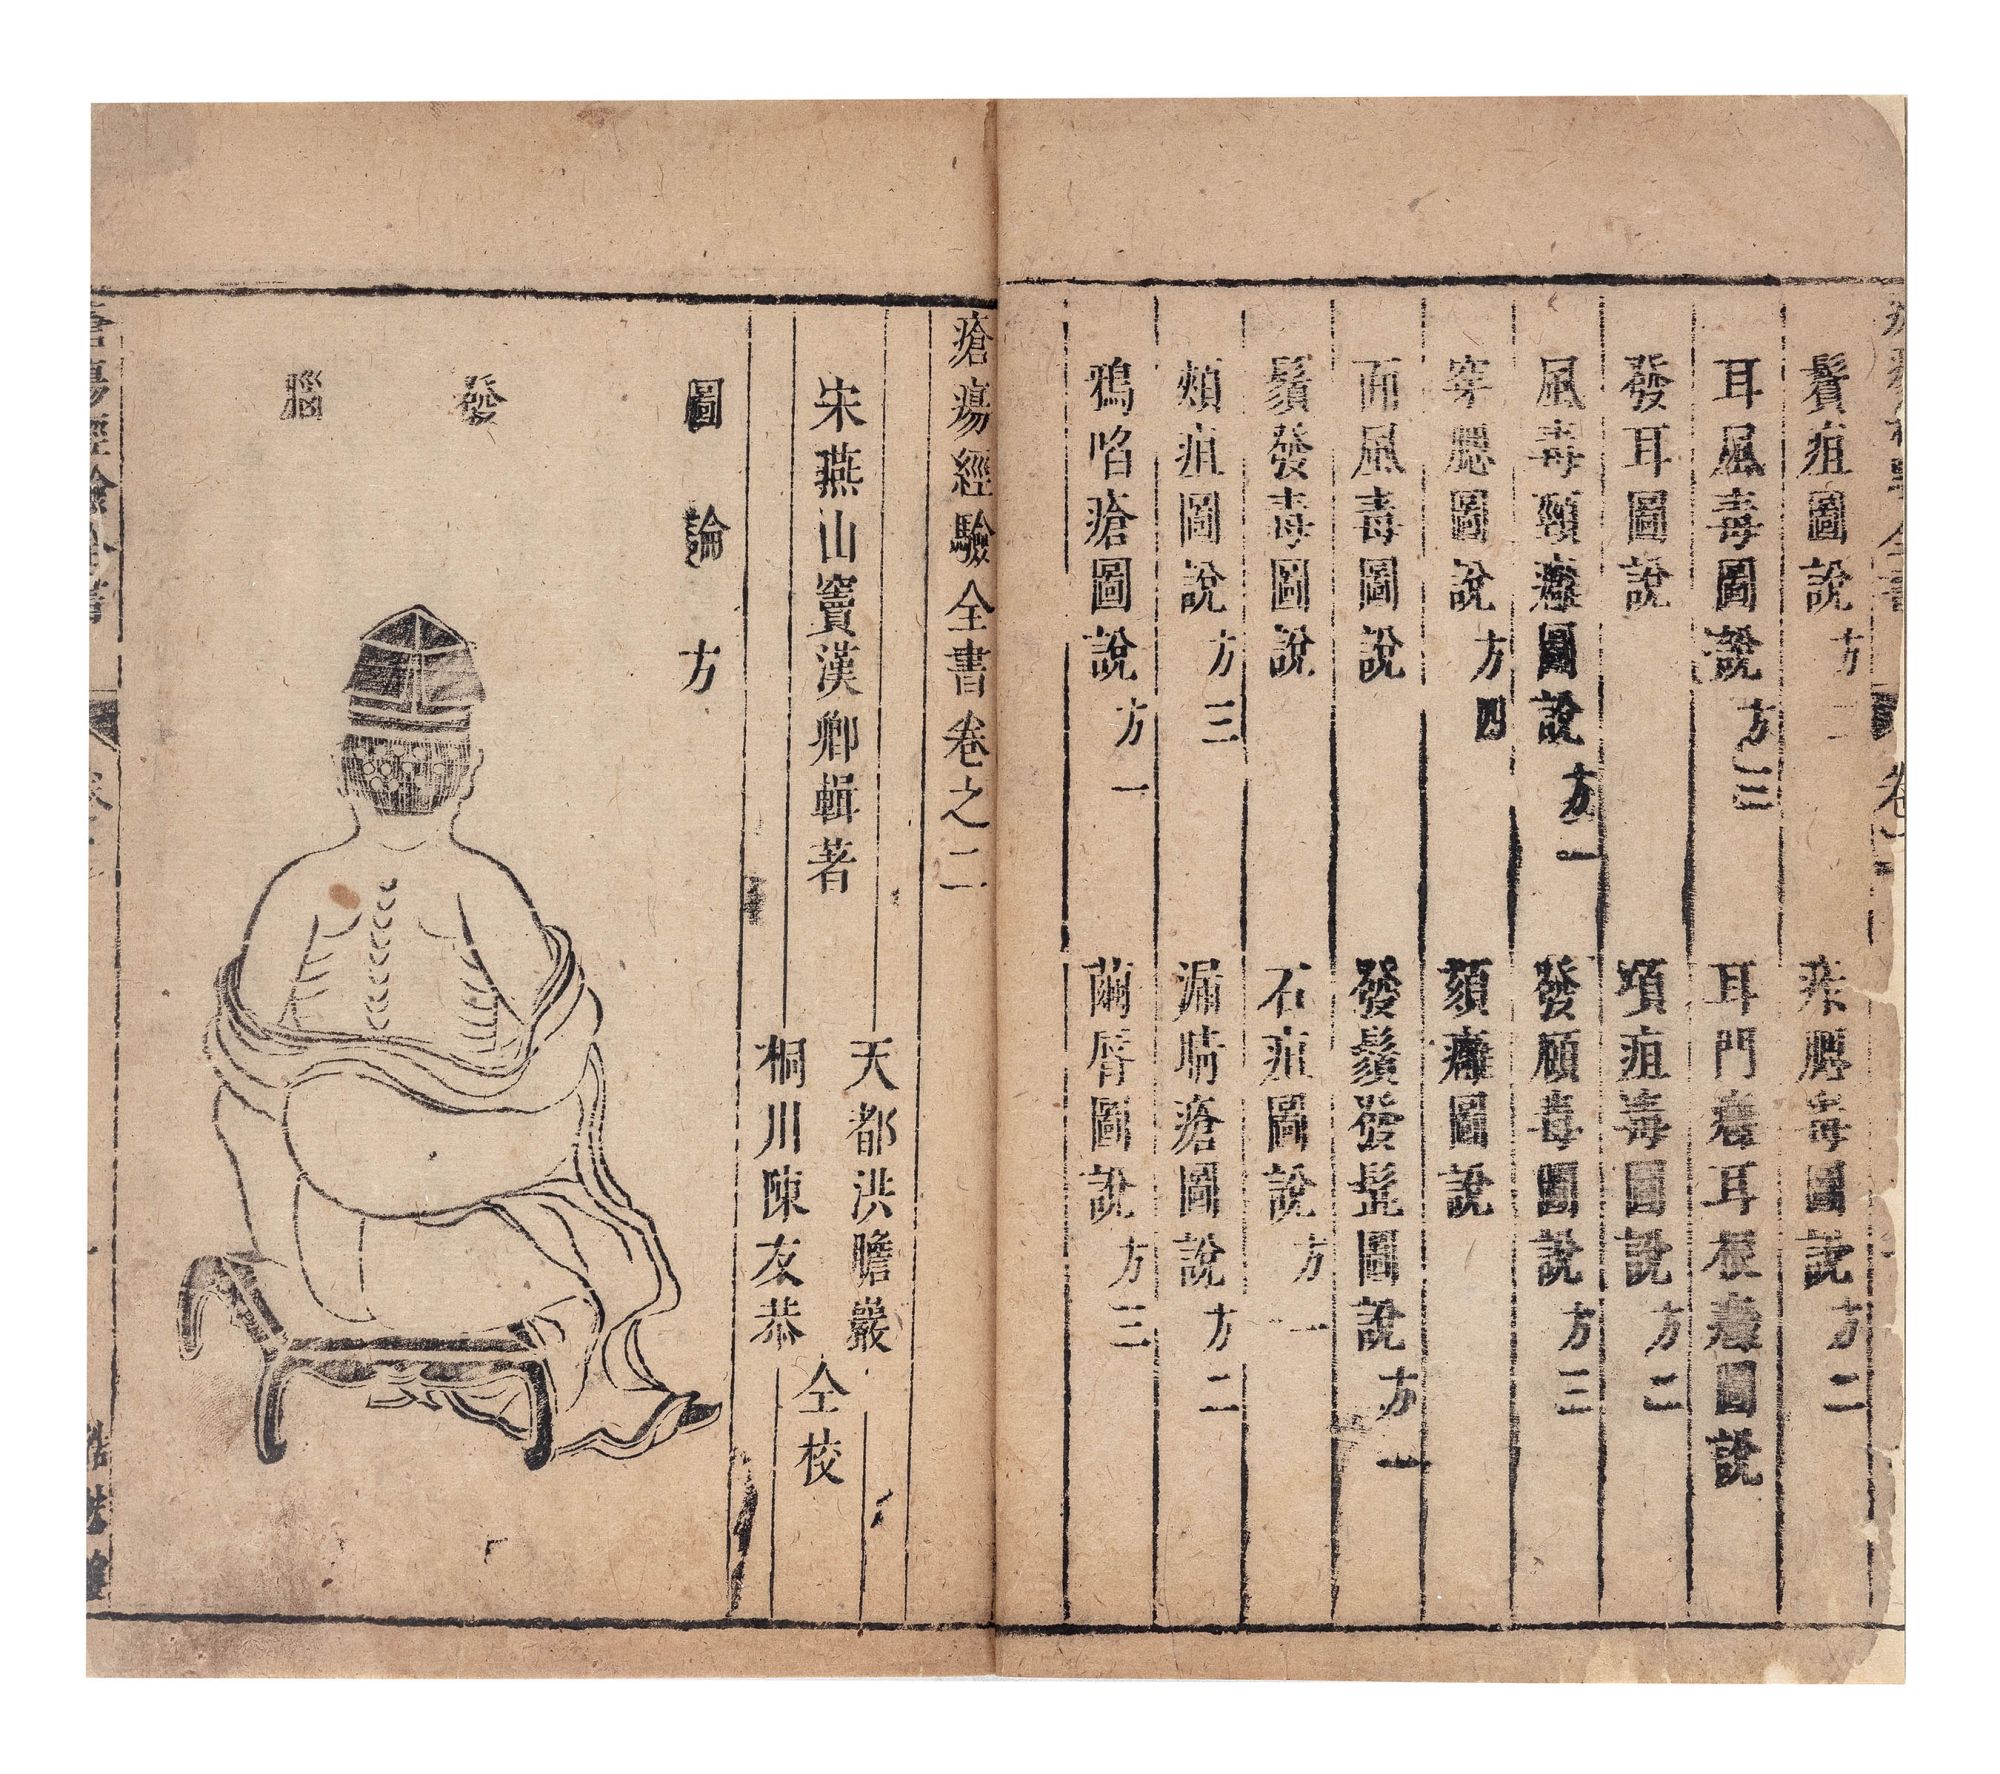 鬢疽圖說 方一
痄腮毒圖說 方二
耳風毒圖說 方三
耳門癰耳根癰圖說
發耳圖說
項疽毒圖說 方二
風毒頸癰圖說 方一
發頤毒圖說 方三
穿腮圖說 方四
頦癰圖說
面風毒圖說
發鬚發髭圖說 方一
鬚發毒圖說
石疽圖說 方一
頰疽圖說 方三
漏睛瘡圖說 方二
鴉啗瘡圖說 方一
繭脣圖說 方三
瘡瘍經驗全書卷之二
宋燕山竇漢卿輯著
天都洪瞻巖
桐川陳友恭
仝校
圖論方
發腦
瘡瘍經驗全書